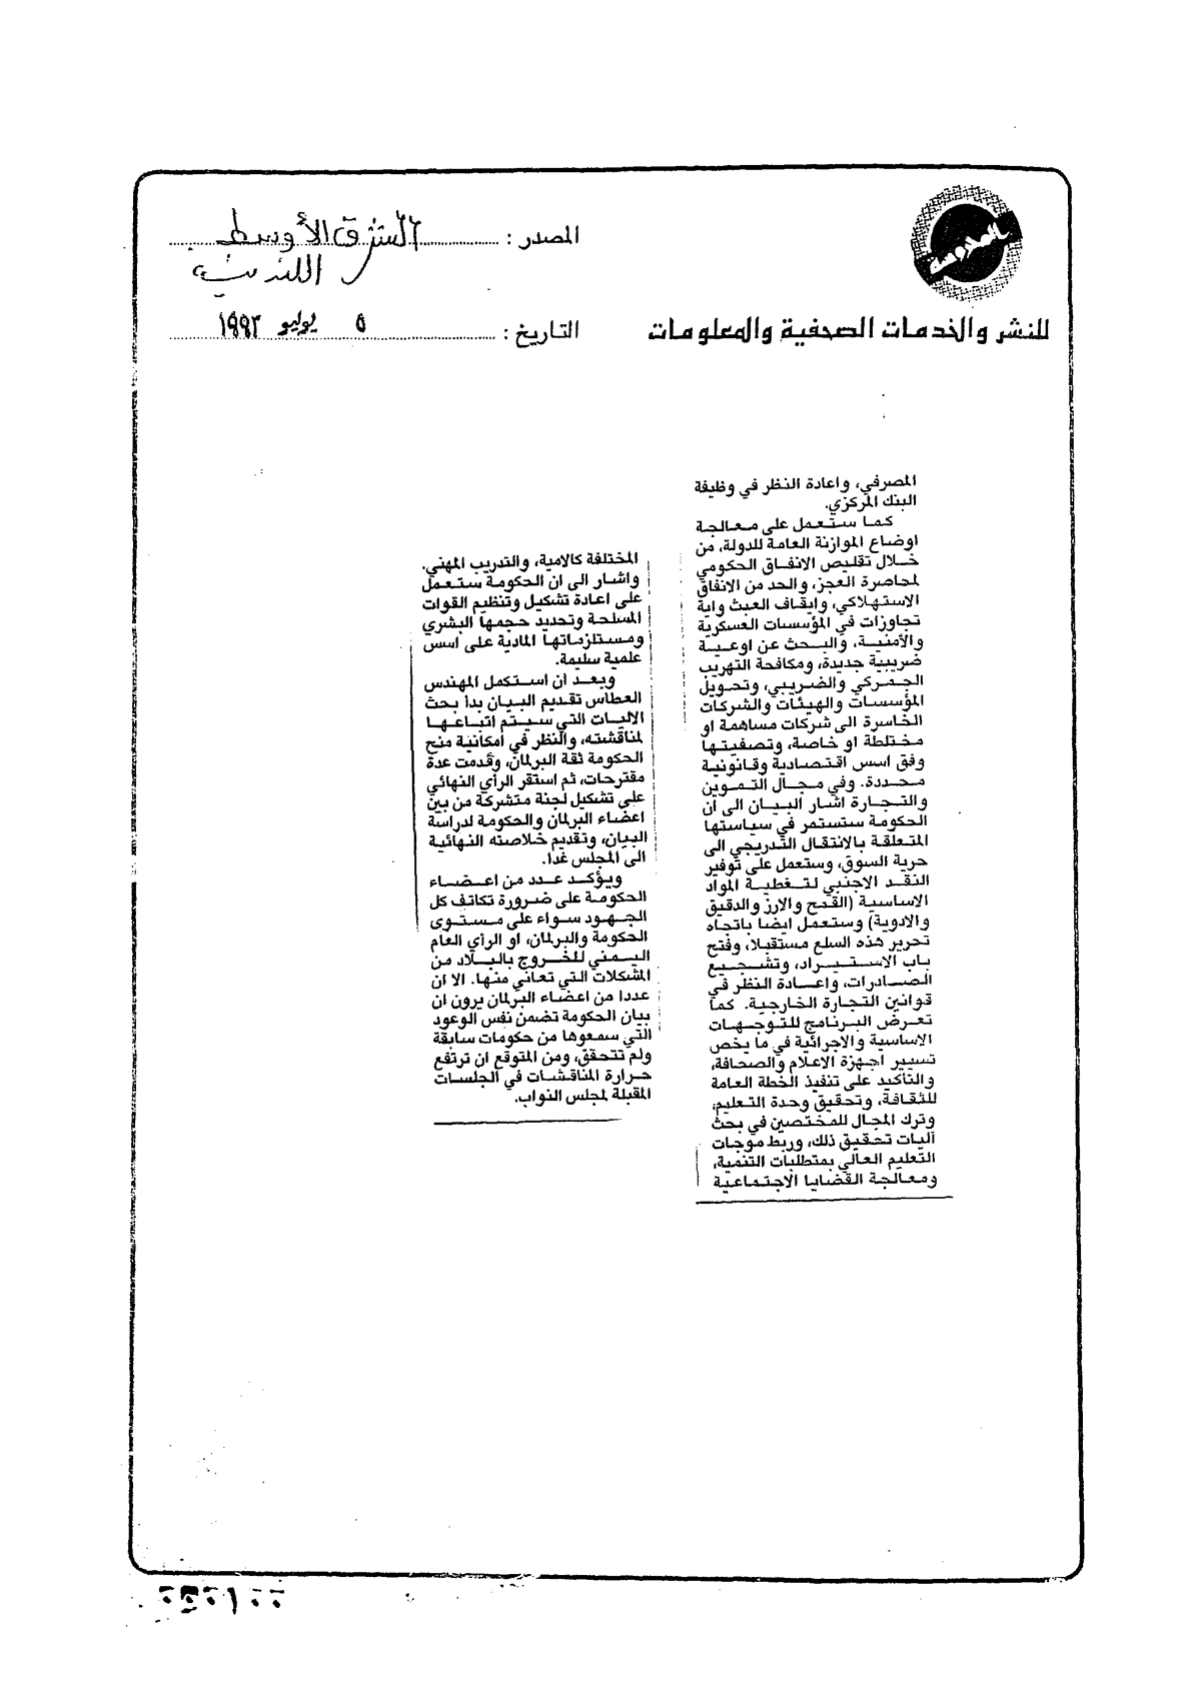 المصدر : الشرق الأوسط
اللندنية
للنشر والخدمات الصحفية والمعلومات
التاريخ : ٥ يوليو ١٩٩٣
المصرفي، واعادة النظر في وظيفة
البنك المركزي.
كما ستعمل على معالجة
اوضاع الموازنة العامة للدولة، من
خلال تقليص الانفاق الحكومي
لمحاصرة العجز، والحد من الانفاق
الاستهلاكي، وايقاف العبث واية
تجاوزات في المؤسسات العسكرية
والأمنية، والبحث عن اوعية
ضريبية جديدة، ومكافحة التهريب
الجمركي والضريبي، وتحويل
المؤسسات والهيئات والشركات
الخاسرة الى شركات مساهمة او
مختلطة او خاصة، وتصفيتها
وفق اسس اقتصادية وقانونية
محددة. وفي مجال التموين
والتجارة اشار البيان الى أن
الحكومة ستستمر في سياستها
المتعلقة بالانتقال التدريجي الى
حرية السوق، وستعمل على توفير
النقد الاجنبي لتغطية المواد
الاساسية (القمح والارز والدقيق
والادوية) وستعمل ايضا باتجاه
تحرير هذه السلع مستقبلا، وفتح
باب الاستيراد، وتشجيع
الصادرات، واعادة النظر في
قوانين التجارة الخارجية. كما
تعرض البرنامج للتوجهات
الاساسية والاجرائية في ما يخص
تسيير اجهزة الاعلام والصحافة،
والتأكيد على تنفيذ الخطة العامة
للثقافة، وتحقيق وحدة التعليم،
وترك المجال للمختصين في بحث
آليات تحقيق ذلك، وربط موجات
التعليم العالي بمتطلبات التنمية،
ومعالجة القضايا الاجتماعية
المختلفة كالامية، والتدريب المهني.
واشار الى ان الحكومة ستعمل
على اعادة تشكيل وتنظيم القوات
المسلحة وتحديد حجمها البشري
ومستلزماتها المادية على اسس
علمية سليمة.
وبعد ان استكمل المهندس
العطاس تقديم البيان بدأ بحث
الاليات التي سيتم اتباعها
لمناقشته، والنظر في امكانية منح
الحكومة ثقة البرلمان، وقدمت عدة
مقترحات، ثم استقر الرأي النهائي
على تشكيل لجنة متشركة من بين
اعضاء البرلمان والحكومة لدراسة
البيان، وتقديم خلاصته النهائية
الى المجلس غدا.
ويؤكد عدد من اعضاء
الحكومة على ضرورة تكاتف كل
الجهود سواء على مستوى
الحكومة والبرلمان، او الرأي العام
اليمني للخروج بالبلاد من
المشكلات التي تعاني منها. الا ان
عددا من اعضاء البرلمان يرون ان
بيان الحكومة تضمن نفس الوعود
التي سمعوها من حكومات سابقة
ولم تتحقق، ومن المتوقع ان ترتفع
حرارة المناقشات في الجلسات
المقبلة لمجلس النواب.